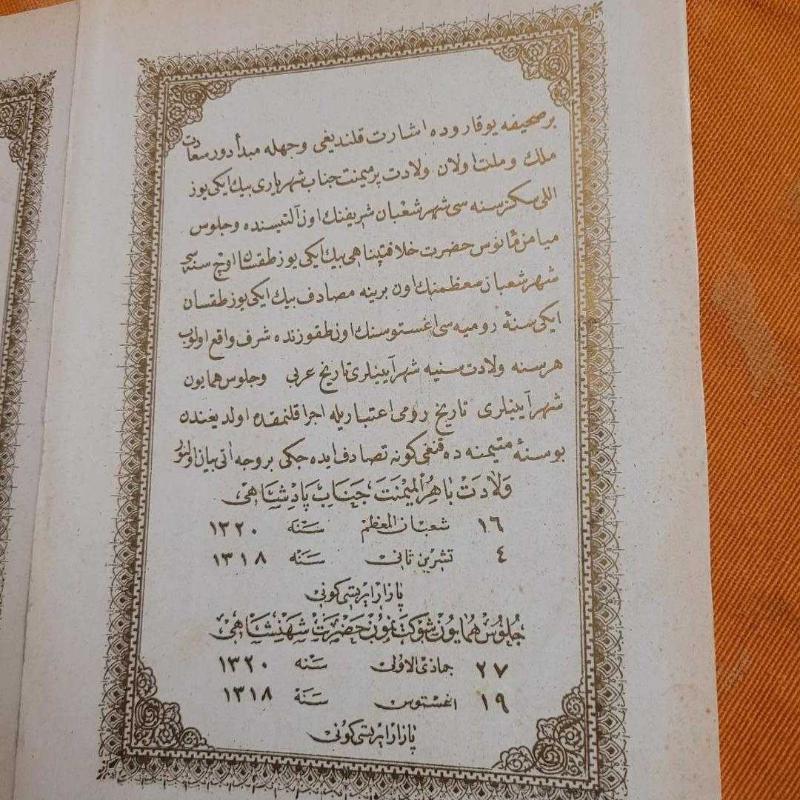 بر صحیفه یوقاروده اشارت قلندیغی وجهله مبدأ دور سعادت
ملك و ملت اولان ولادت پرمیمنت جناب شهریاری بیك ایکی یوز
اللی سکز سنه سی شهر شعبان شریفنك اون آلتیسنده و جلوس
میامن مأنوس حضرت خلافتپناهی بیك ایکی یوز طقسان اوچ سنه سی
شهر شعبان معظمنك اون برینه مصادف بیك ایکی یوز طقسان
ایکی سنۀ رومیه سی اغستوسنك اون طقوزنده شرف واقع اولوب
هر سنه ولادت سنیه شهرآیینلری تاریخ عربی و جلوس همایون
شهرآیینلری تاریخ رومی اعتباریله اجرا قلنمقده اولدیغندن
بو سنۀ متیمنه ده قنغی کونه تصادف ایده جکی بروجه آتی بیان اولنور
ولادت باهر المیمنت جناب پادشاهی
١٦ شعبان المعظم سنه ١٣٢٠
٤ تشرین ثانی سنه ١٣١٨
پازار ایرتسی کونی
جلوس همایون شوکتمقرون حضرت شهنشاهی
٢٧ جماذی الاولی سنه ١٣٢٠
١٩ اغستوس سنه ١٣١٨
پازار ایرتسی کونی